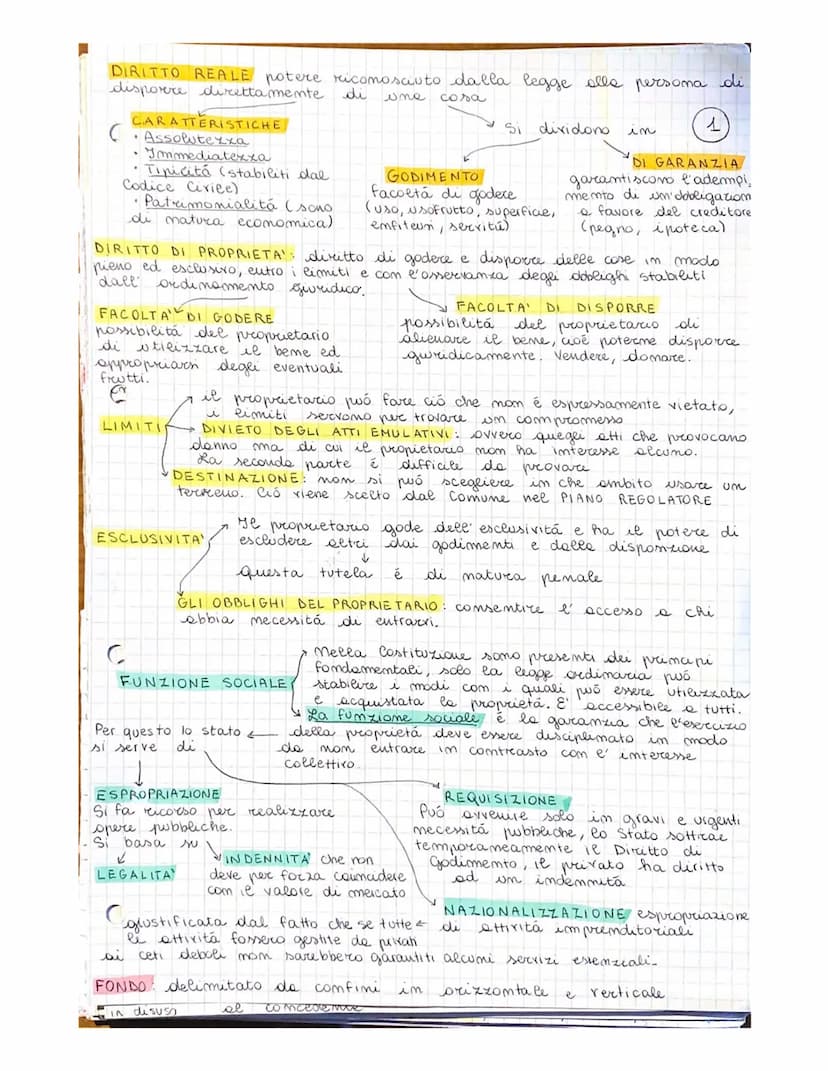 DIRITTO REALE potere riconosciuto dalla legge alla persona di
disporre direttamente di una cosa
CARATTERISTICHE
• Assolutezza
• Immediatezza
• Tipicitá (stabiliti dal
Codice Civile)
• Patrimonialitá (sono
di natura economica)
Si dividono in
1
GODIMENTO
facoltá di godere
(uso, usofrutto, superficie,
enfiteusi, servitú)
DI GARANZIA
garantiscono l'adempi
mento di un'obbligazion
a favore del creditore
(pegno, ipoteca)
DIRITTO DI PROPRIETA': diritto di godere e disporre delle cose in modo
pieno ed esclusivo, entro i limiti e con l'osservanza degli obblighi stabiliti
dall'ordinamento giuridico.
FACOLTA' DI GODERE
possibilitá del proprietario
di utilizzare il bene ed
appropriarsi degli eventuali
frutti.
FACOLTA' DI DISPORRE
possibilitá del proprietario di
alienare il bene, cioé poterne disporre
giuridicamente. Vendere, donare.
LIMITI
il proprietario puó fare ció che non é espressamente vietato,
i limiti servono per trovare un compromesso
DIVIETO DEGLI ATTI EMULATIVI: ovvero quegli atti che provocano
danno ma di cui il proprietario non ha interesse alcuno.
La seconda parte é difficile da provare
DESTINAZIONE: non si puó scegliere in che ambito usare un
terreno. Ció viene scelto dal Comune nel PIANO REGOLATORE
ESCLUSIVITA'
Il proprietario gode dell'esclusivitá e ha il potere di
escludere altri dai godimenti e dalla disposizione
Questa tutela é di natura penale
GLI OBBLIGHI DEL PROPRIETARIO: consentire l'accesso a chi
abbia necessitá di entrarvi.
FUNZIONE SOCIALE
Nella Costituzione sono presenti dei principi
fondamentali, solo la legge ordinaria puó
stabilire i modi con i quali puó essere utilizzata
e acquistata la proprietá. E' accessibile a tutti.
La funzione sociale é la garanzia che l'esercizio
della proprietá deve essere disciplinato in modo
da non entrare in contrasto con l'interesse
collettivo.
Per questo lo stato
si serve di
ESPROPRIAZIONE
Si fa ricorso per realizzare
opere pubbliche.
Si basa su
LEGALITA'
INDENNITA' che non
deve per forza coincidere
con il valore di mercato
REQUISIZIONE
Puó avvenire solo in gravi e urgenti
necessitá pubbliche, lo Stato sottrae
temporaneamente il Diritto di
Godimento, il privato ha diritto
ad un indennitá
NAZIONALIZZAZIONE espropriazione
di attivitá imprenditoriali
giustificata dal fatto che se tutte
le attivitá fossero gestite da privati
ai ceti deboli non sarebbero garantiti alcuni servizi essenziali.
FONDO: delimitato da confini in orizzontale e verticale
in disuso al concedente